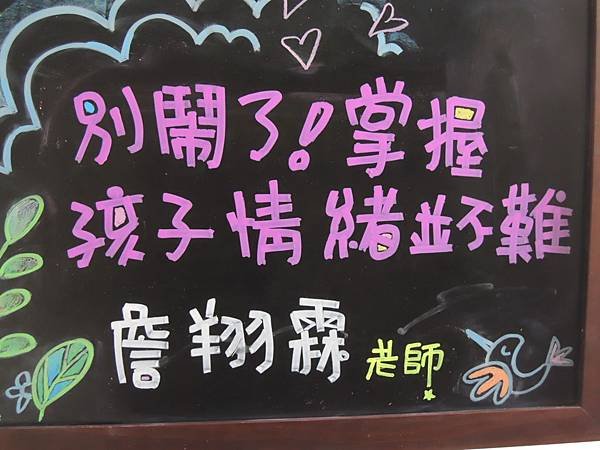 別鬧了!掌握
孩子情緒並不難
詹翔霖 老師